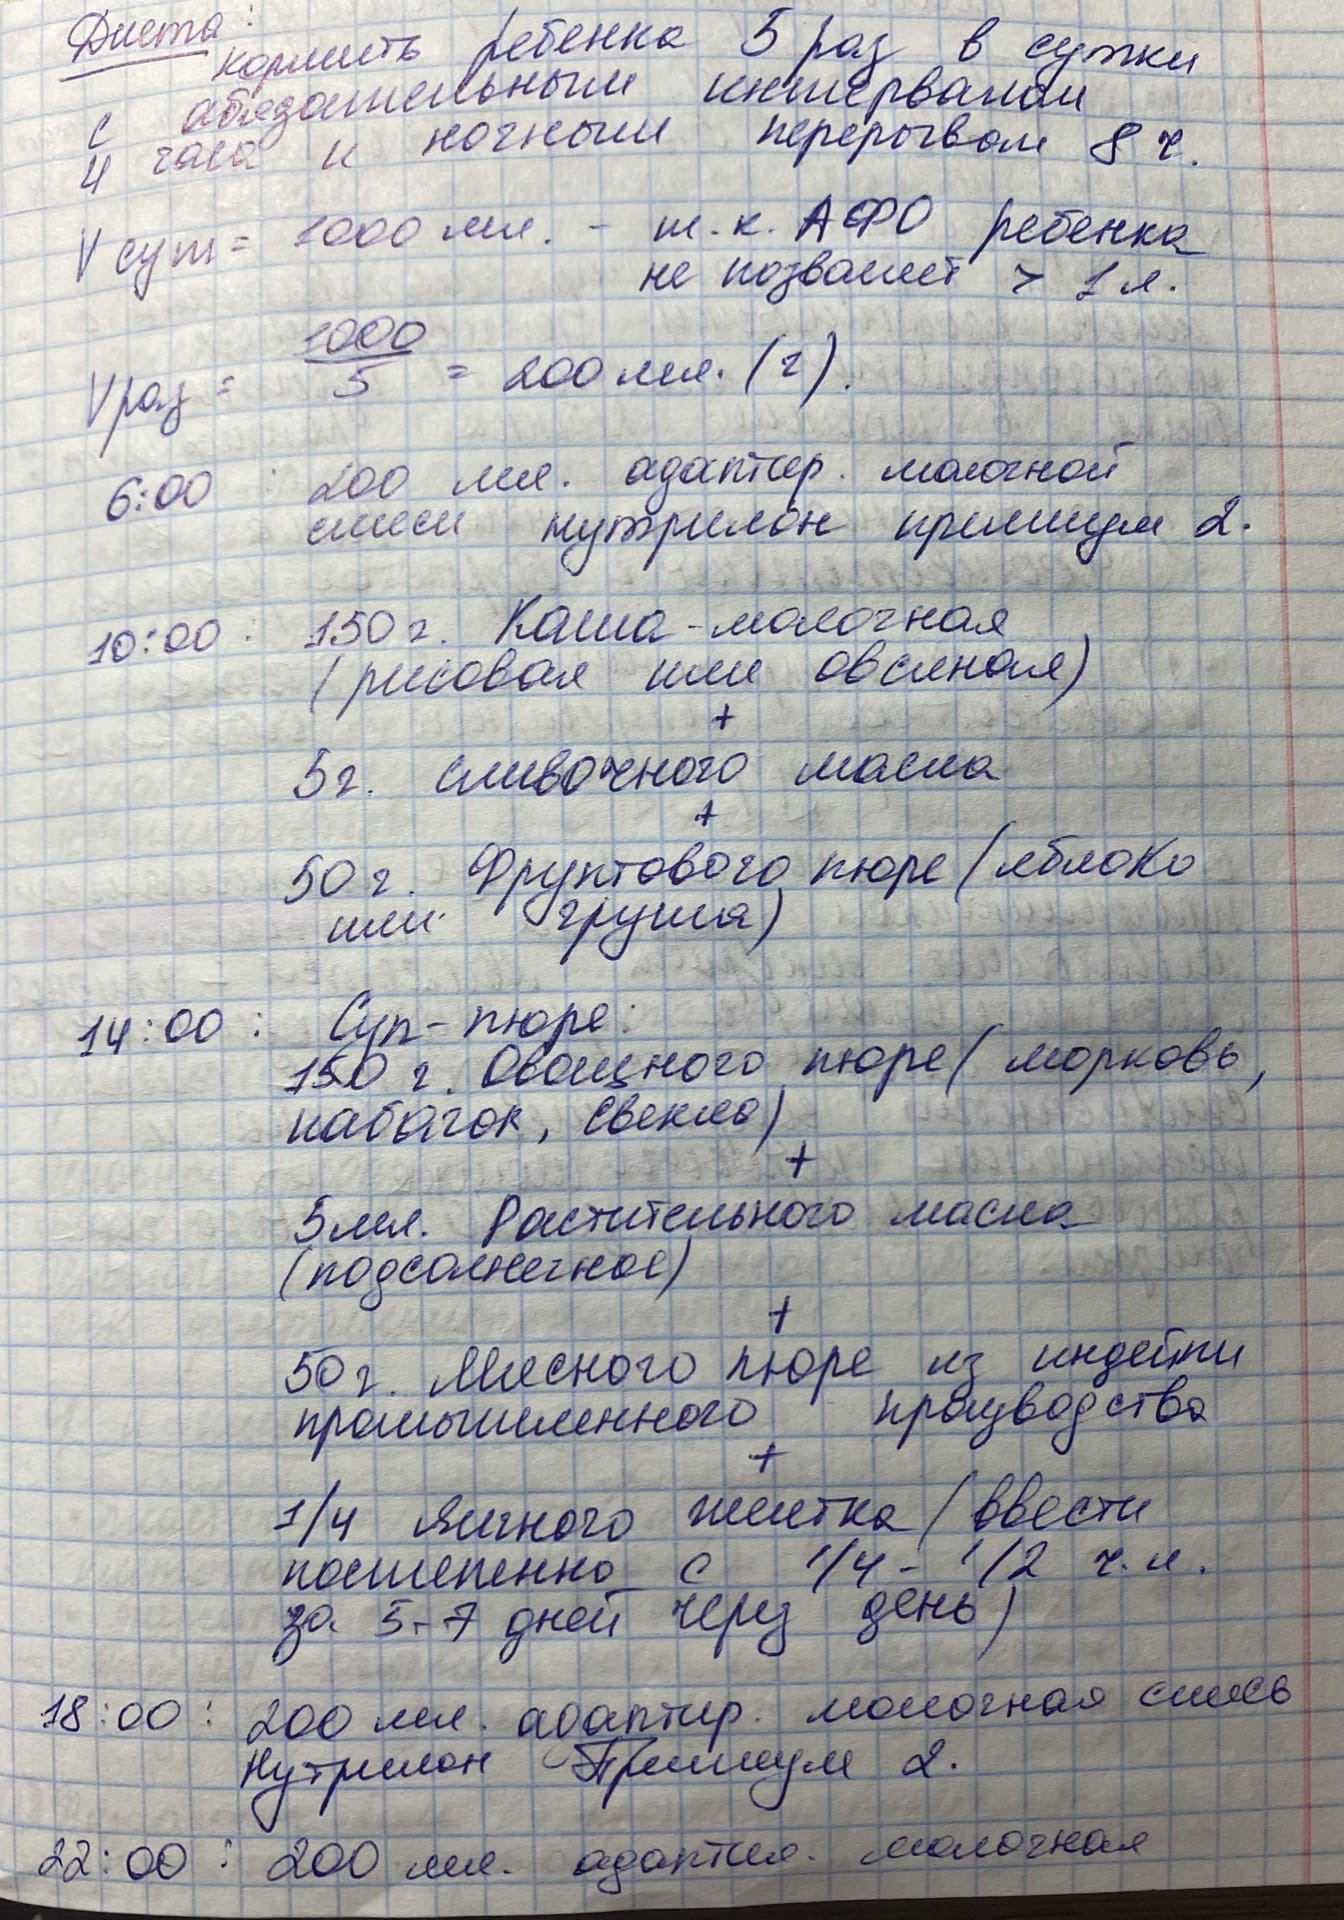 Диета:
кормить ребенка 5 раз в сутки
с обязательным интервалом
4 часа и ночным перерывом 8 ч.
V сут = 1000 мл. - т.к. АФО ребенка
не позволяет > 1 л.
V раз = 1000/5 = 200 мл. (г).
6:00 : 200 мл. адаптир. молочной
смеси нутрилон премиум 2.
10:00 : 150 г. Каша-молочная
(рисовая или овсяная)
+
5 г. сливочного масла
+
50 г. Фруктового пюре (яблоко
или груша)
14:00 : Суп-пюре:
150 г. Овощного пюре (морковь,
кабачок, свекла)
+
5 мл. Растительного масла
(подсолнечное)
+
50 г. Мясного пюре из индейки
промышленного производства
+
1/4 яичного желтка (ввести
постепенно с 1/4 - 1/2 ч.л.
за 5-7 дней через день)
18:00 : 200 мл. адаптир. молочная смесь
Нутрилон Премиум 2.
22:00 : 200 мл. молочная